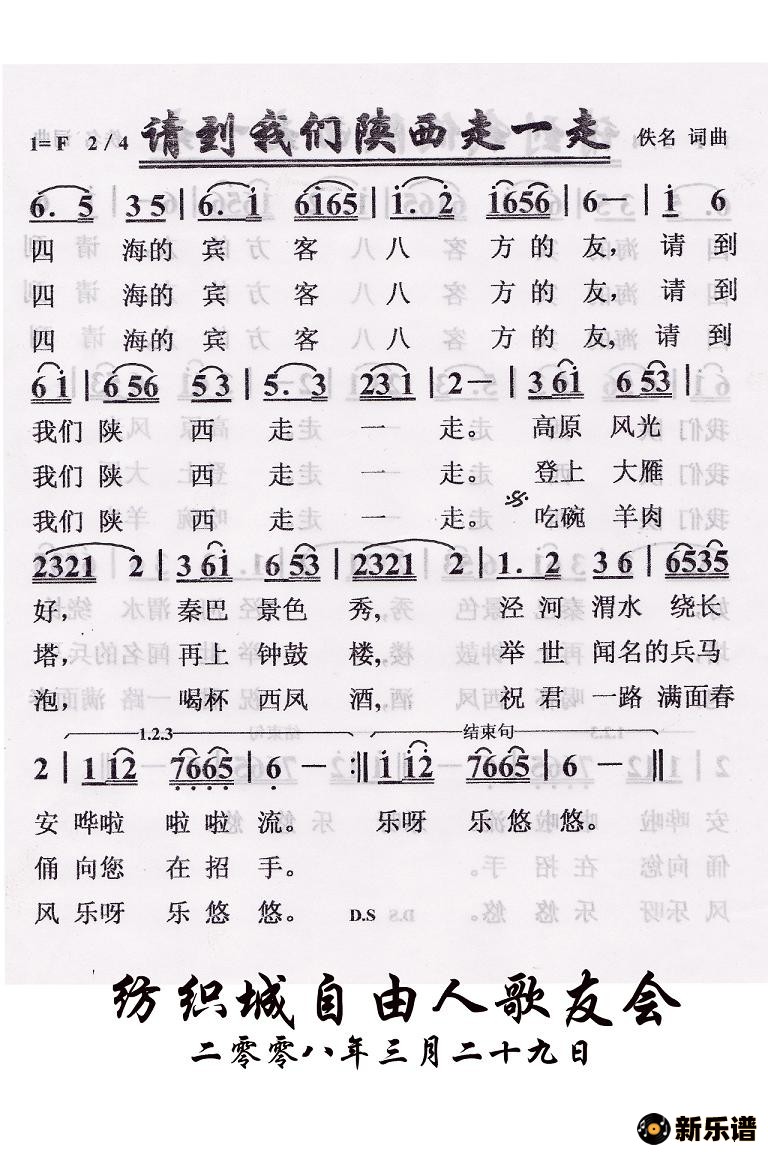 请到我们陕西走一走
1=F 2/4 佚名 词曲
6. 5 | 3 5 | 6. i 6i65 | i. 2 1656 | 6 — | i 6
四 海的 宾 客 八 八 方的 友, 请到
四 海的 宾 客 八 八 方的 友, 请到
四 海的 宾 客 八 八 方的 友, 请到
6 i | 6 56 5 3 | 5. 3 231 | 2 — | 3 6i 6 53 |
我们 陕 西 走 一 走。 高原 风光
我们 陕 西 走 一 走。 登上 大雁
我们 陕 西 走 一 走。 吃碗 羊肉
2321 2 | 3 6i 6 53 | 2321 2 | 1. 2 3 6 | 6535
好, 秦巴 景色 秀, 泾河 渭水 绕长
塔, 再上 钟鼓 楼, 举世 闻名的兵马
泡, 喝杯 西风 酒, 祝君 一路 满面春
1.2.3 结束句
2 | 1 12 7665 | 6 — :|| i i2 7665 | 6 — ||
安 哗啦 啦啦 流。 乐呀 乐悠悠。
俑 向您 在招 手。
风 乐呀 乐悠 悠。 D.S
纺织城自由人歌友会
二零零八年三月二十九日
新乐谱